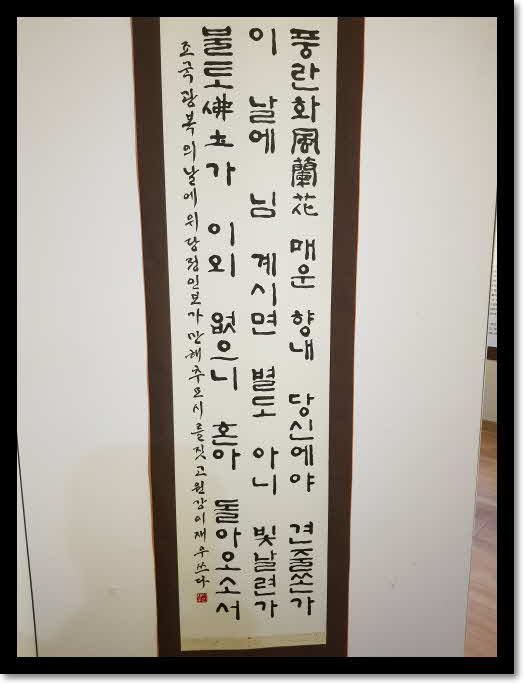 풍란화風蘭花 매운 향내 당신에야 견줄쏜가
이 날에 님 계시면 별도 아니 빛날런가
불토佛土가 이외 없으니 혼아 돌아오소서
조국광복의날에위당정인보가만해추모시를짓고원강이재우쓰다